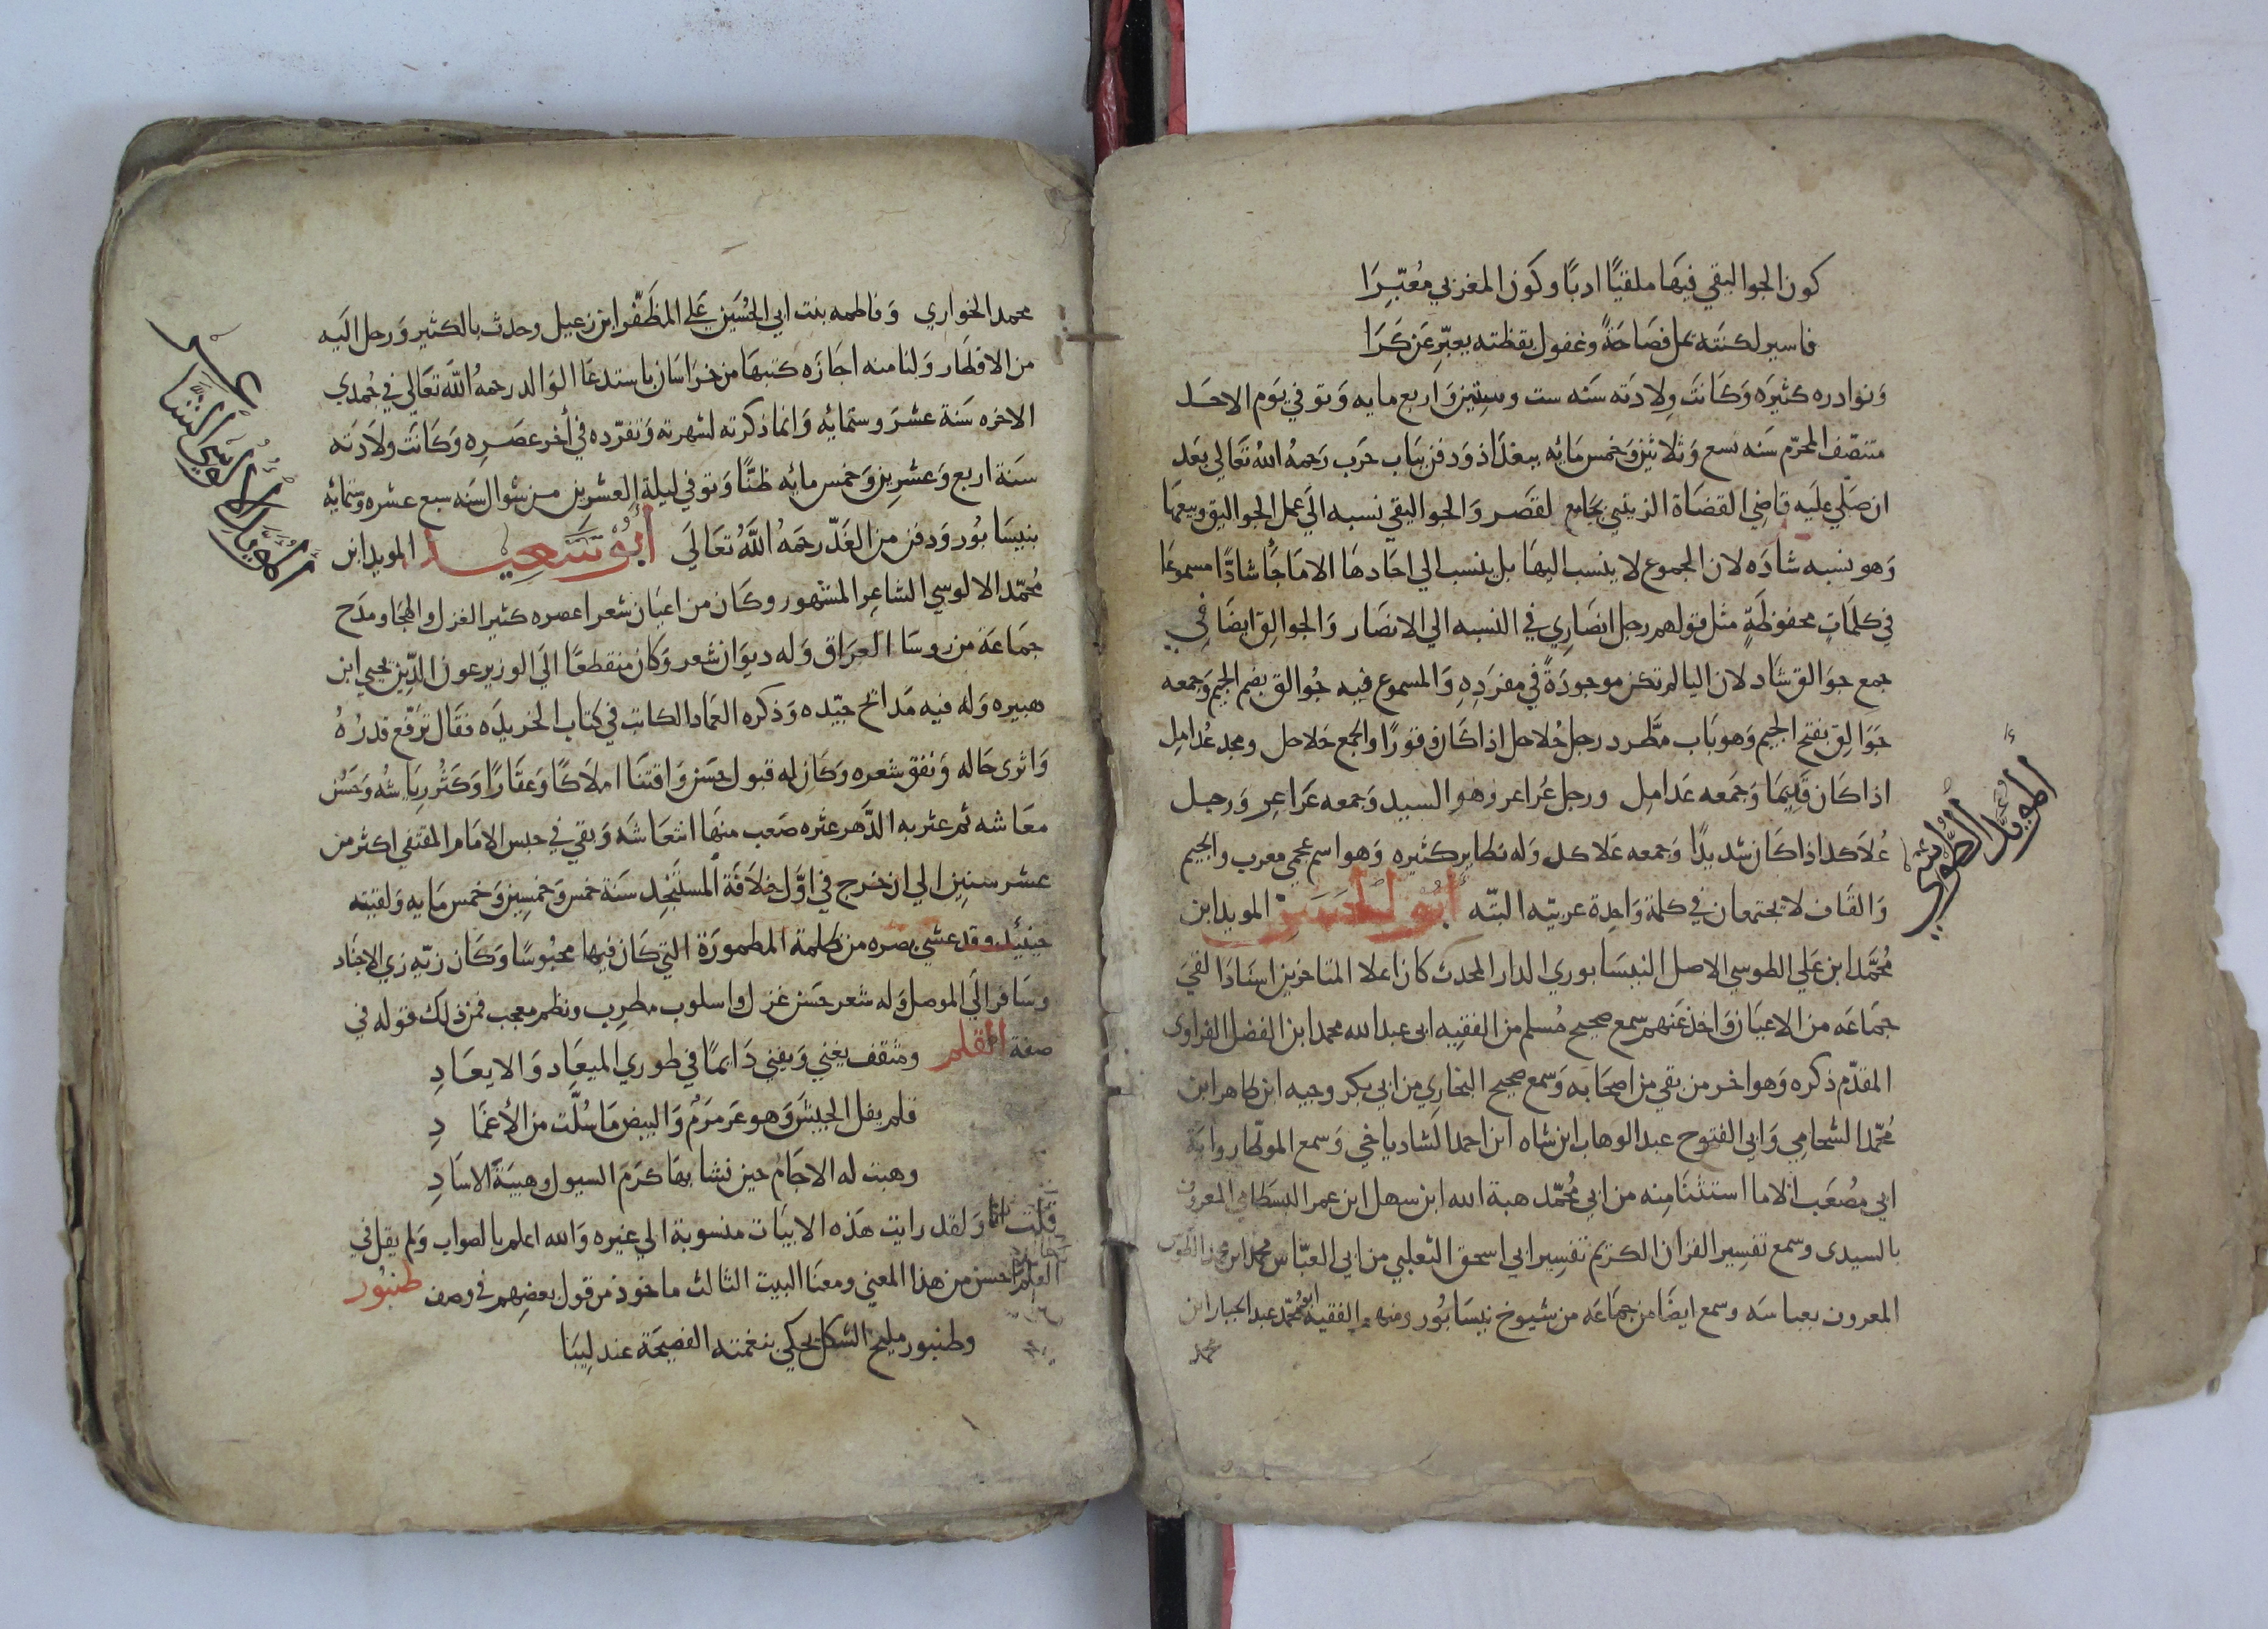 كون الجواليقي فيها ملقيًا ادبًا وكون المغربي مُعبّرَا
فاسير لكنته يمل فصاحةً وغفول يقظته يعبّر عن كرَا
ونوادره كثيره وكانت ولادته سنه ست وستين واربع مايه وتوفي يوم الاحد
منتصف المحرّم سنه تسع وثلاثين وخمس مائه ببغداذ ودفن بباب حرب رحمه الله تعالي بعد
ان صلي عليه قاضي القضاة الزينبي بجامع القصر والجواليقي نسبه الي عمل الجواليق وبيعها
وهو نسبه شاذه لان الجموع لا ينسب اليها بل ينسب الي احادها الا ما جا شاذًا مسموعا
في كلمات محفوظةٍ مثل قولهم رجل انصاري في النسبه الي الانصار والجواليق ايضا في
جمع جوالق شاذ لان اليا لم تكن موجودةً في مفرده والمسموع فيه جُوالق بضم الجيم وجمعه
جَوالق بفتح الجيم وهو باب مطّرد رجل حُلاحل اذا كان وقورًا والجمع حَلاحل ومجد عُدامل
اذا كان قديما وجمعه عَدامل ورجل عُراعر وهو السيد وجمعه عَراعر ورجل
عُلاكد اذا كان شديدًا وجمعه عَلاكد وله نظاير كثيره وهو اسم عجمي معرب والجيم
والقاف لا يجتمعان في كلمة واحدة عربيه البته أبو الحسن المويد ابن
محمّد ابن علي الطوسي الاصل النيسابوري الدار المحدث كان اعلا المتاخرين اسنادا لقي
جماعه من الاعيان واخذ عنهم سمع صحيح مُسلم من الفقيه ابي عبد الله محمد ابن الفضل الفراوي
المقدّم ذكره وهو اخر من بقي من اصحابه وسمع صحيح البخاري من ابي بكر وجيه ابن طاهر ابن
محمّد الشحامي وابي الفتوح عبد الوهاب ابن شاه ابن احمد الشادياخي وسمع الموطا رواية
ابي مصعب الا ما استثنا منه من ابي محمّد هبة الله ابن سهل ابن عمر البسطامي المعروف
بالسيدي وسمع تفسير القران الكريم تفسير ابي اسحق الثعلبي من ابي العبّاس محمد ابن محمد الطوسي
المعروف بعباسه وسمع ايضا من جماعه من شيوخ نيسابور ومنهم الفقيه ابو محمّد عبد الجبار ابن
محمد
المويد الطوسي
محمد الخواري وفاطمه بنت ابي الحُسَين علي المظفّر ابن زعبل وحدث بالكثير ورحل اليه
من الاقطار ولنا منه اجازه كتبها من خراسان باستدعا الوالد رحمه الله تعالي في جُمدي
الاخره سنة عشر وستمائه وانما ذكرته لشهرته وتفرّده في أخر عصره وكانت ولادته
سنة اربع وعشرين وخمس مائه ظنًّا وتوفي ليلة العشرين من شوال سنه سبع عشره وستمائه
بنيسابُور ودفن من الغدّ رحمه اللّه تعالى أبو سعيد المويد ابن
محمّد الالوسي الشاعر المشهور وكان من اعيان شعرا عصره كثير الغزل والهجا ومدح
جماعة من روسا العراق وله ديوان شعر وكان منقطعًا الي الوزير عون الدّين يحيي ابن
هبيره وله فيه مدائح جيّده وذكره العماد الكاتب في كتاب الخريده فقال ترفّع قدرُهُ
واثرى حاله ونفق شعره وكان له قبول حسن واقتنا املاكًا وعقارًا وكثُر رياشُه وحَسُن
معاشه ثم عثر به الدّهر عثره صعب منها انتعاشه وبقي في حبس الامام المقتفي اكثر من
عشر سنين الي ان خرج في اوّل خلافة المستنجد سنة خمس وخمسين وخمس مايه ولقيته
حينئذ وقد عشي بصره من ظلمة المطمورة التي كان فيها محبوسًا وكان زيّه زي الاجناد
وسافر الي الموصل وله شعر حسن غزل واسلوب مطرب ونظم معجب فمن ذلك قوله في
صفة القلم ومثقف يغني ويفني دايمًا في طوري الميعاد والايعادِ
قلم يفل الجيش وهو عرمرم والبيض ما سُلّت من الأغمادِ
وهبت له الاجام حين نشا بها كرم السيول وهيبة الاسادِ
قلت انا ولقد رايت هذه الابيات منسوبة الي غيره والله اعلم بالصواب ولم يقل في
القلم احسن من هذا المعني ومعنا البيت الثالث ماخوذ من قول بعضهم في وصف طنبور
وطنبور مليح الشكل يحكي بنغمته الفصيحة عندليبَا